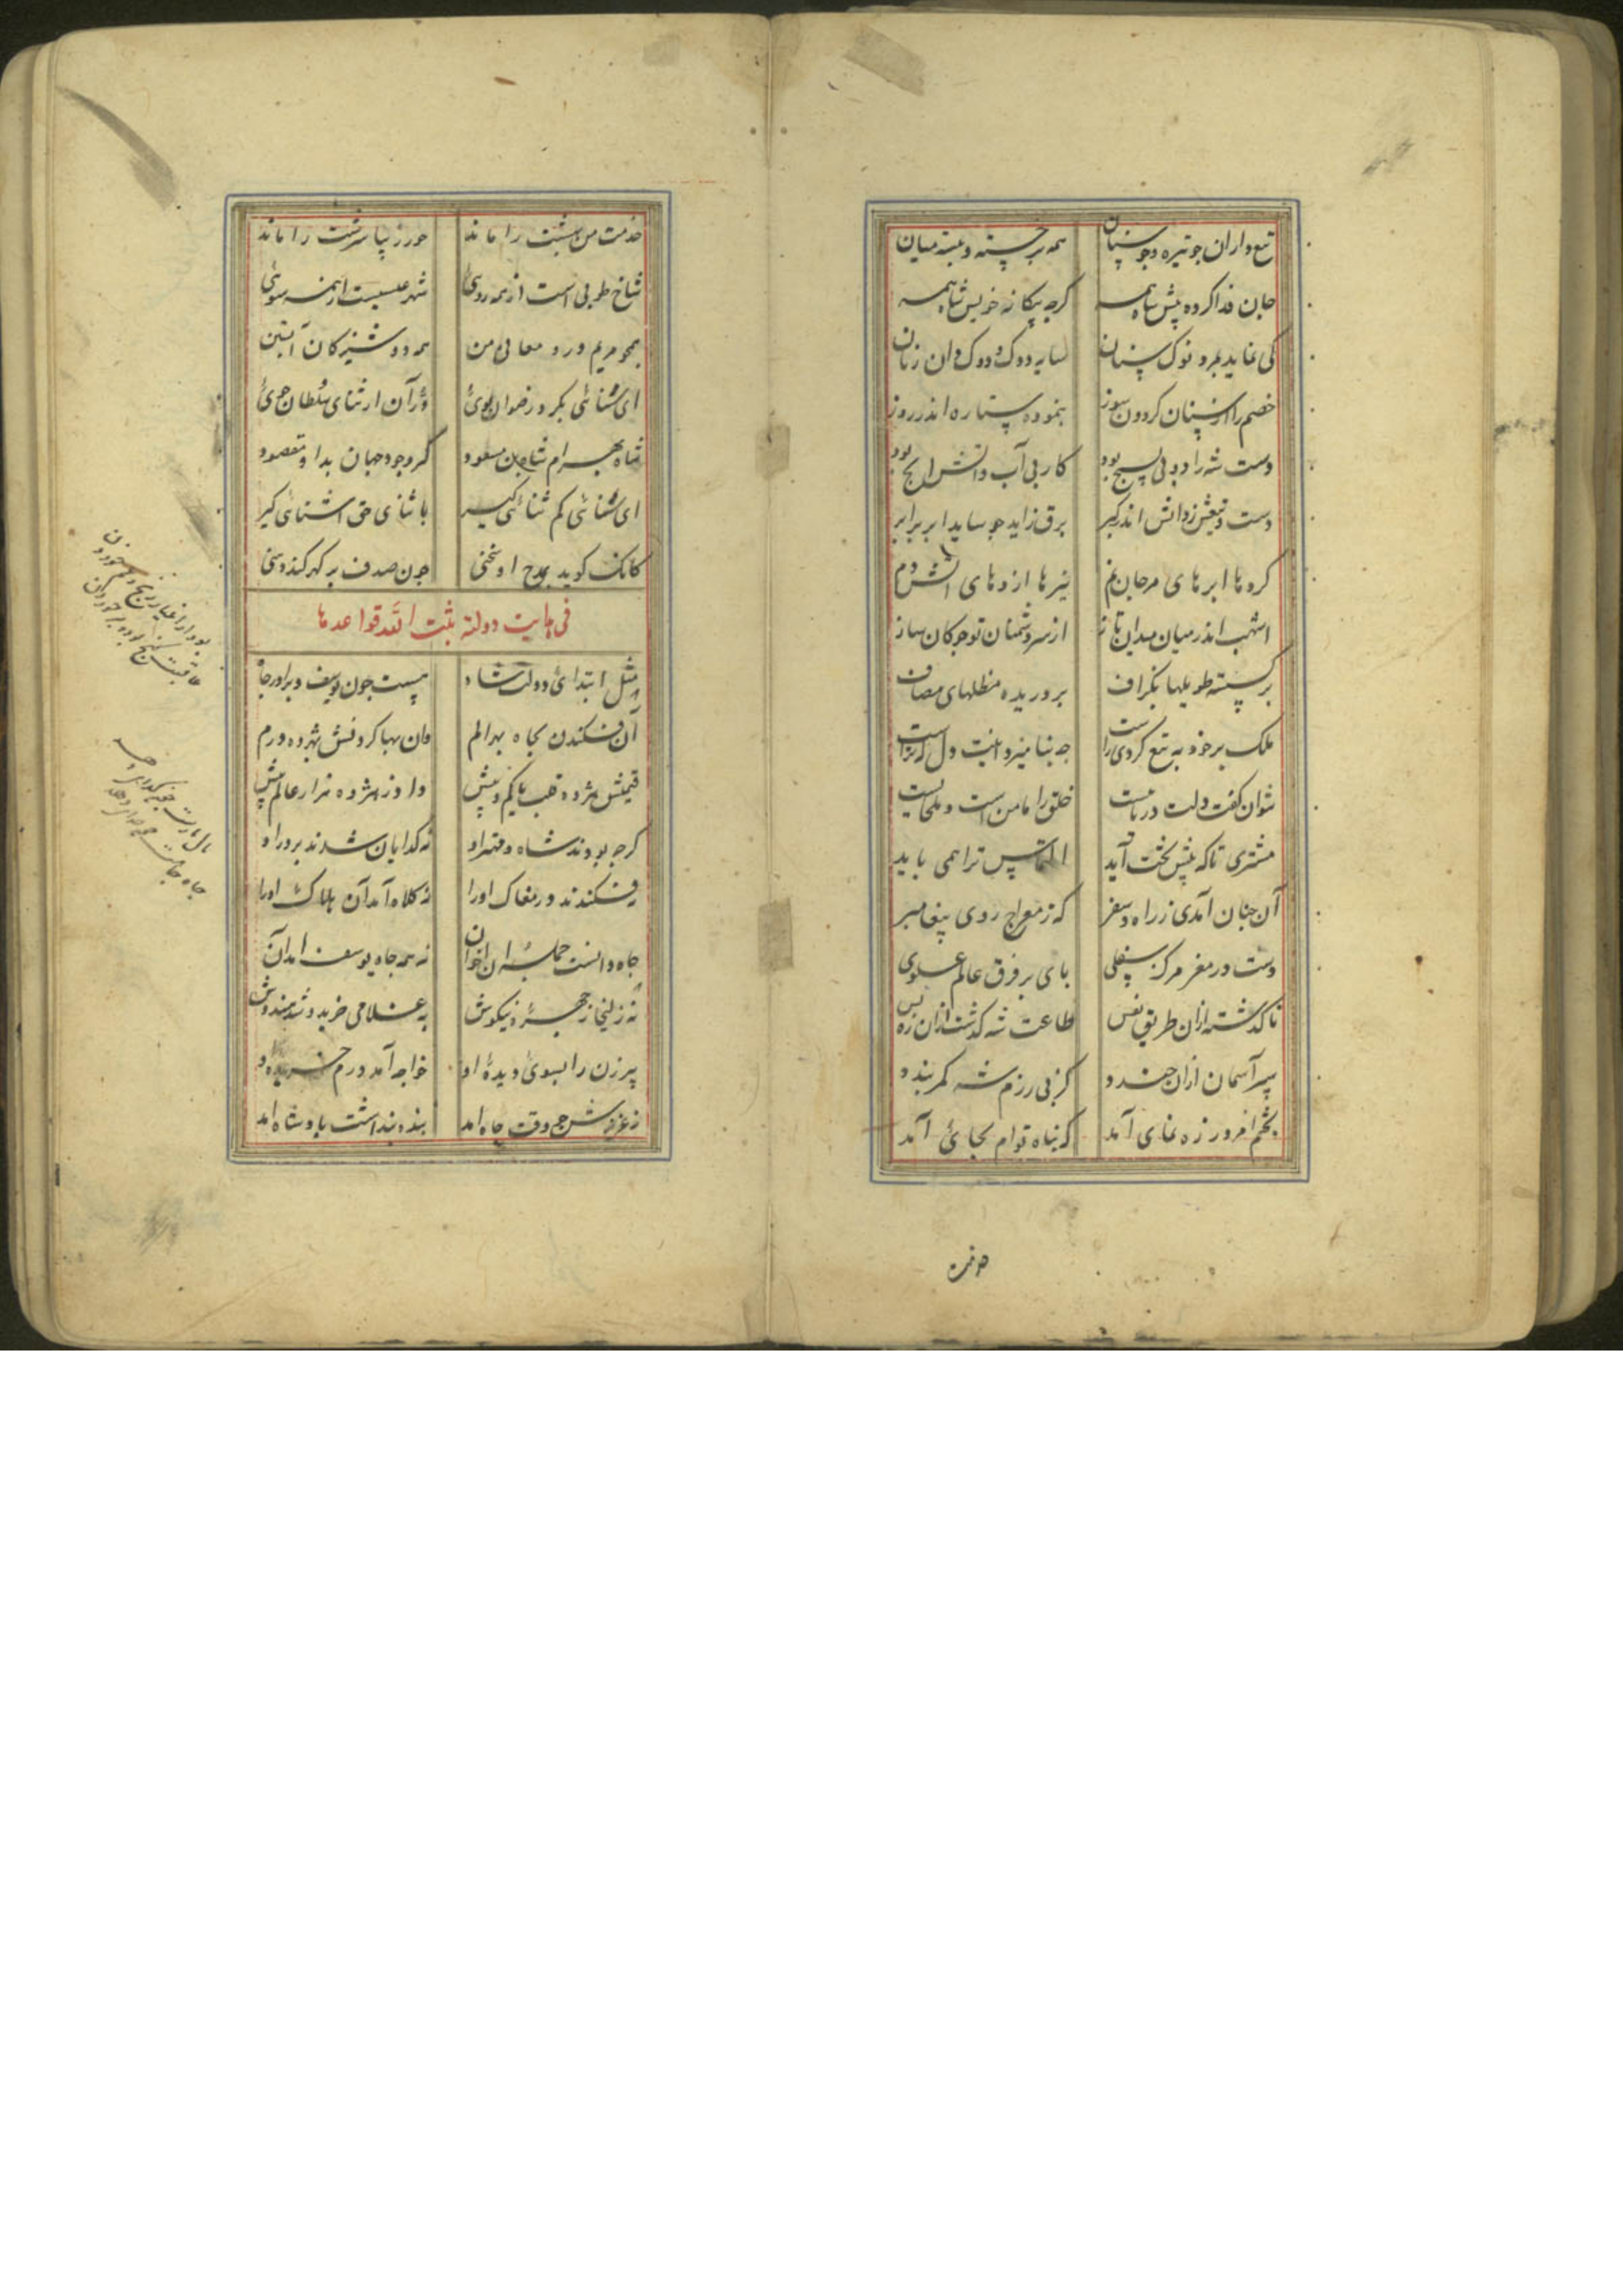 تیغ داران چو تیره و چو سنان همه برجسته و ببسته میان
جان فدا کرده پیش شاه همه کرچه بیکانه خویش شاه همه
کی نماید بمرد نوک سنان سایه دوک و دوک دان زنان
خصم را از سنان کردون سوز بنموده ستاره اندر روز
دست شه راد و بی بسیج بود کار بی آب و آتش ایج بود
دست و تیغش زدانش اندر کبر برق زاید چو ساید ابر بر ابر
کرد ما ابرهای مرجان نم نیزها اژدهای آتش دم
اشهب اندر میان میدان تاز از سر دشمنان تو جوکان ساز
بر کسسته طویلها بکزاف بر دریده مظلهای مصاف
ملک بر خود به تیغ کردی راست دل که تراست
نتوان کفت دولت دریاست خلق را مامن است و ملجاست
مشتری تا که پیش تخت آید التماس ترا همی باید
آن چنان آمدی ز راه و سفر که ز معراج روی پیغامبر
دست در مغز مرکز سفلی بای بر فرق عالم علوی
تا کذشته ازان طریق نفس طاعت شه کذشت ازان ره بس
سپر آسمان ازان خندد کز بی رزم شه کمر بندد
بخثم افروز زه نمای آمد که بناه توام بجای آمد
خدمت من بهشت را ماند حور زیبا سرشت را ماند
شاخ طوبی است از همه روئی شهد عیسیست از همه سوئی
همجو مریم درو معانی من همه دوشیزکان آبستن
ای سنائی بکرد رضوان بوئ در آن از ثنای سلطان جوئ
شاه بهرام شاه بن مسعود کز وجود جهان بدا و مقصود
ای سنائی کم ثنائی کیر با ثنای حق آشنائی کیر
کانک کوید بمدح او سخنی چون صدف بر کهر کند دهنی
فی بدایت دولته ثبت الله قواعدها
مثل ابتدائ دولت شاه هست چون یوسف و برادر و جاه
آن فکندن بجاه بهر الم وان بها کردنش بهژده درم
قیمتش هژده قلب یا کم و بیش داد و ز هژده هزار عالم بیش
کرچه بودند شاه و مهتر او نه کدایان شدند بر در او
فکندند در مغاک او را نه کلاه آمد آن هلاک او را
جاه دانست جمله اخوان نه همه جاه یوسف آمد آن
نه زلیخا ز جهره نیکوش به غلامی خرید و شد هندوش
پیر زن را بسوئ دیدهٔ او خواجه آمد درم خریده او
ز غرفه بنده بنداشت بادشاه آمد